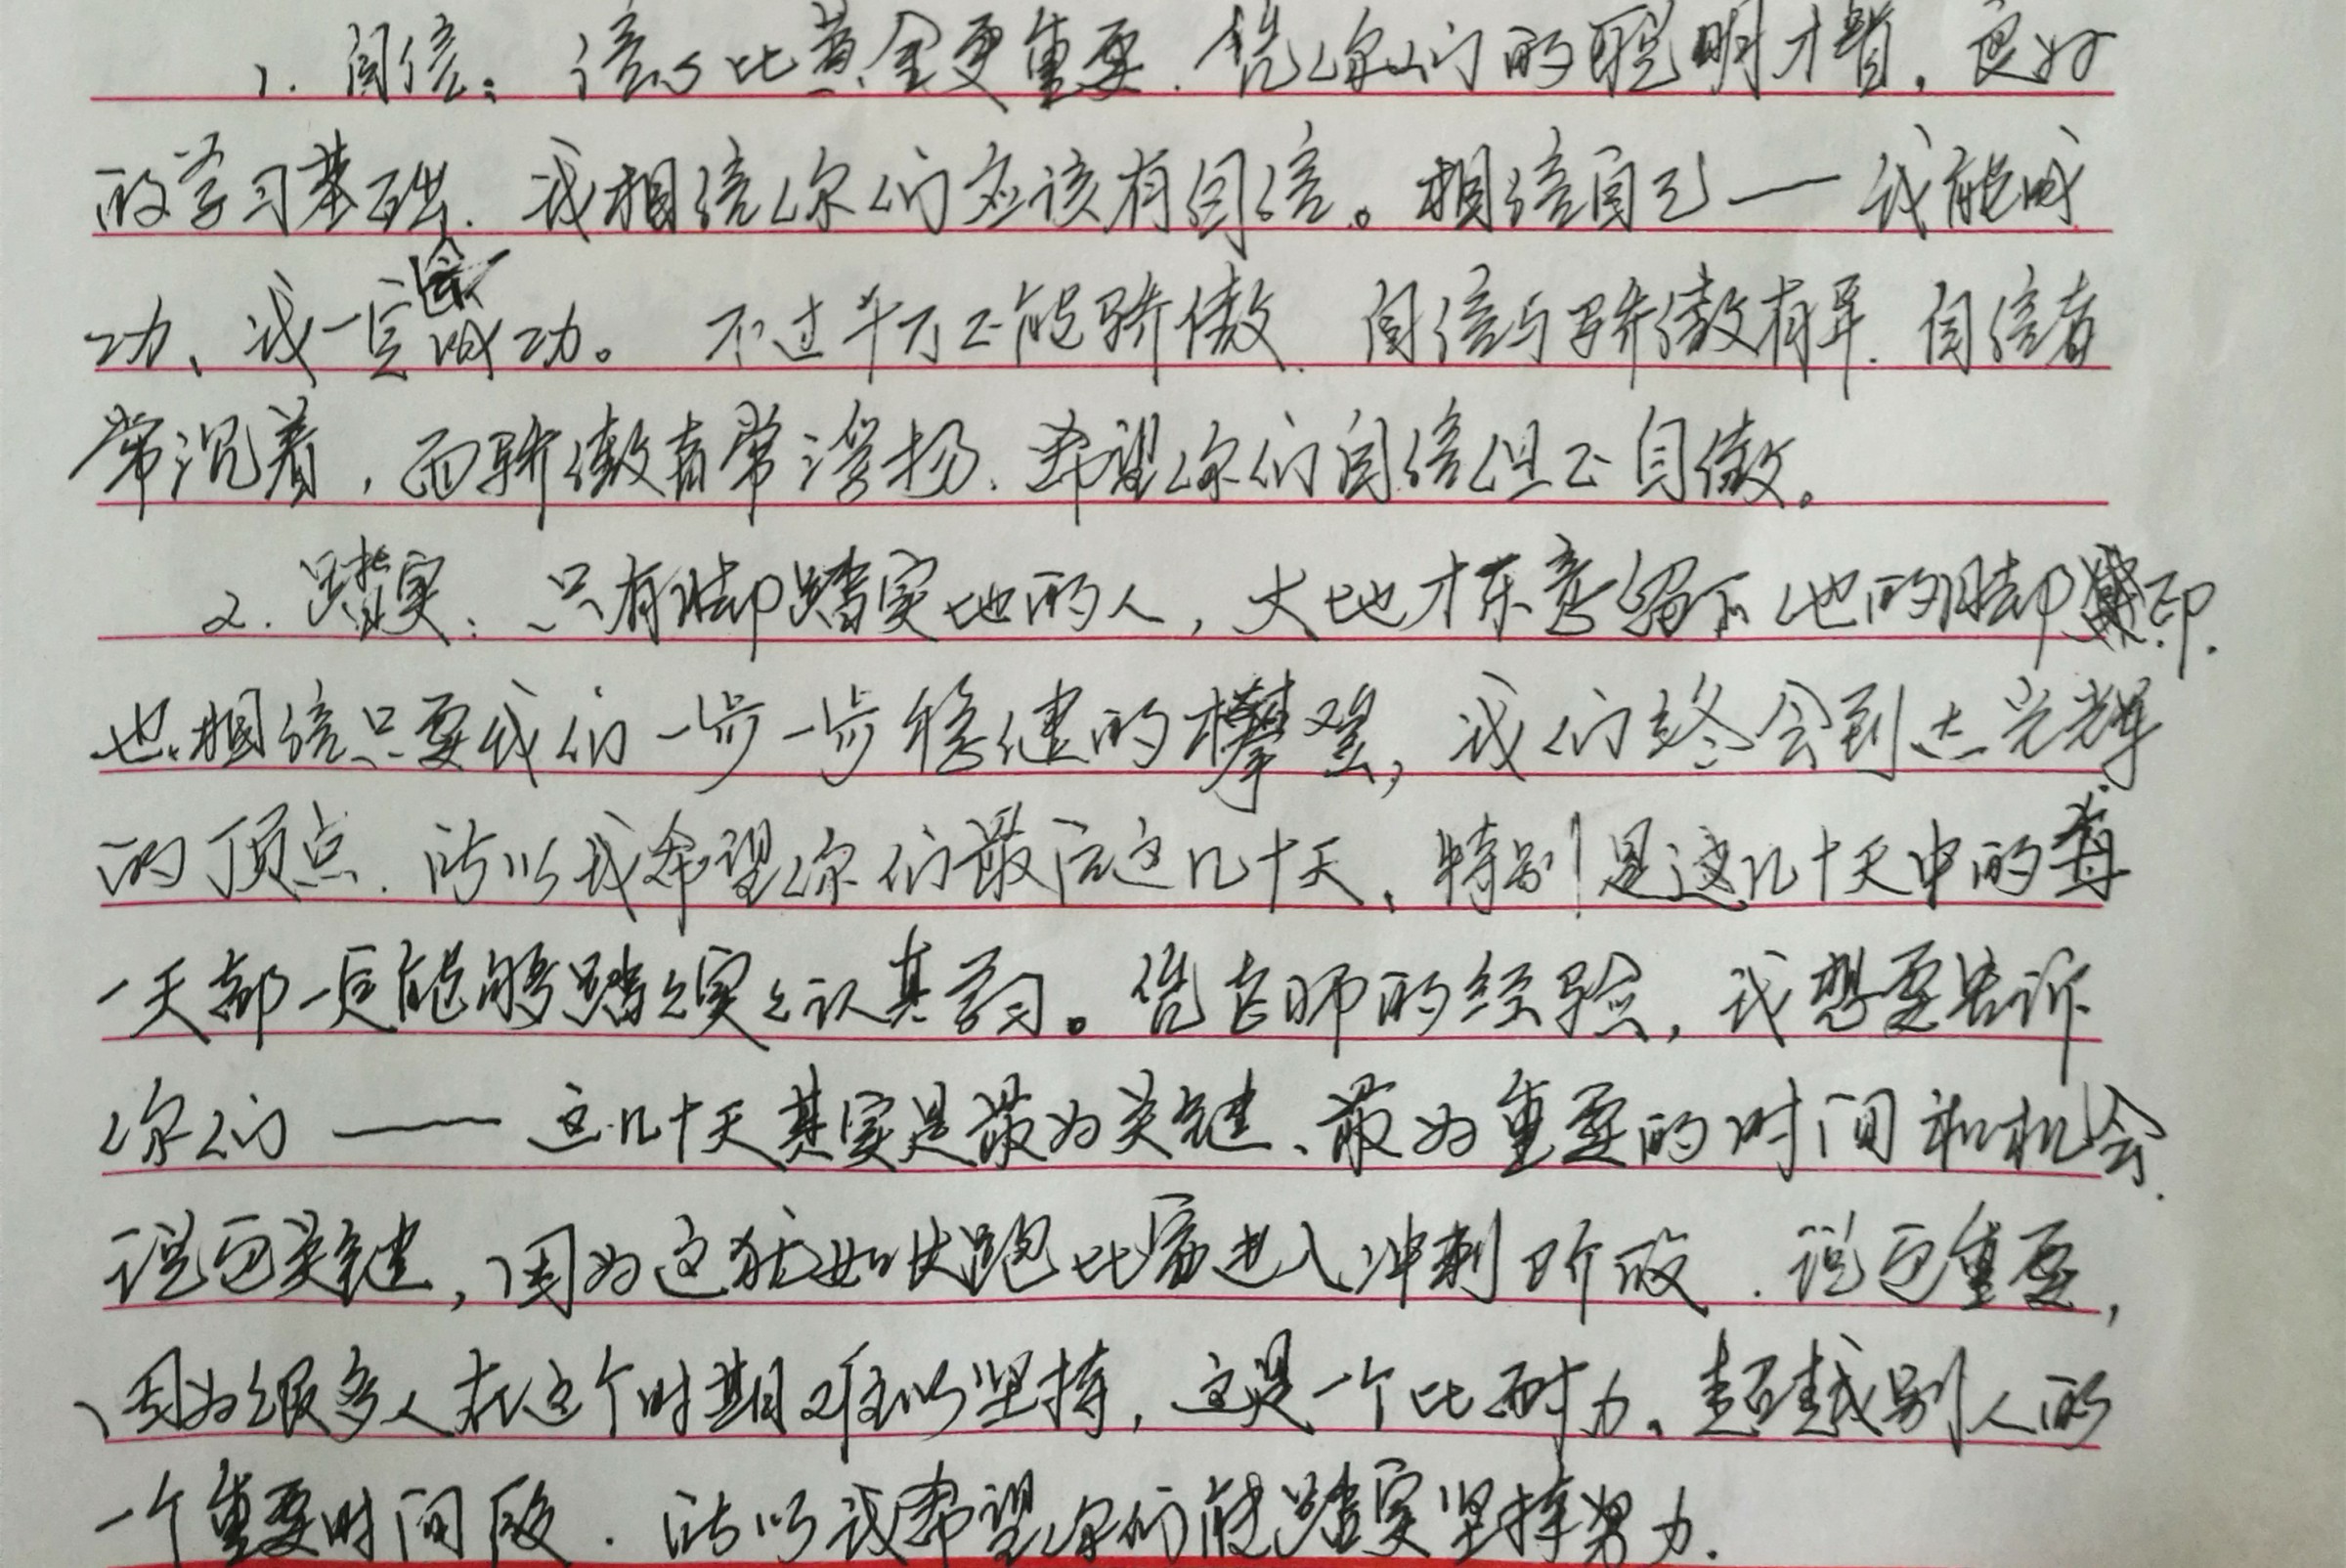 1. 自信：信心比黄金更重要．凭你们的聪明才智，良好
的学习基础．我相信你们应该有自信。相信自己——我能成
功、我一定会成功。不过千万不能骄傲．自信与骄傲有异．自信者
常沉着，而骄傲者常浮扬．希望你们自信但不自傲。
2. 踏实：只有脚踏实地的人，大地才乐意留下他的脚印．
也相信只要我们一步一步稳健的攀登，我们终会到达光辉
的顶点．所以我希望你们最后这几十天，特别是这几十天中的每
一天都一定能够踏踏实实认真学习。凭老师的经验，我想要告诉
你们——这几十天其实是最为关键、最为重要的时间和机会．
说它关键，因为这犹如长跑比赛进入冲刺阶段．说它重要，
因为很多人在这个时期难以坚持，这是一个比耐力、超越别人的
一个重要时间段．所以我希望你们能踏实坚持努力．